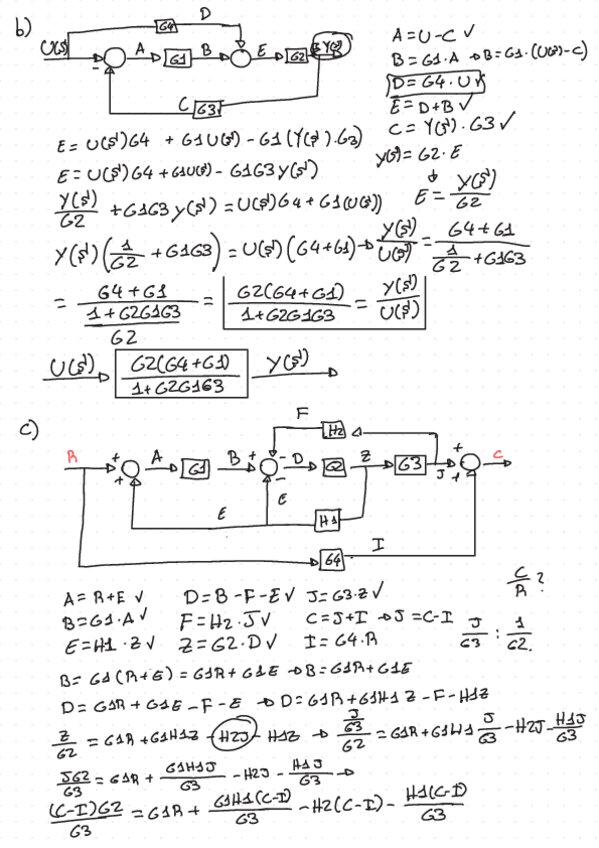 b)
D
G4
U(s) A G1 B E G2 Y(s)
-
C G3
A = U - C ✓
B = G1 · A → B = G1 · (U(s) - C)
D = G4 · U ✓
E = D + B ✓
C = Y(s) · G3 ✓
Y(s) = G2 · E
↓
E = Y(s)/G2
E = U(s)G4 + G1U(s) - G1(Y(s) · G3)
E = U(s)G4 + G1U(s) - G1G3Y(s)
Y(s)/G2 + G1G3Y(s) = U(s)G4 + G1(U(s))
Y(s)(1/G2 + G1G3) = U(s)(G4+G1) → Y(s)/U(s) = (G4+G1)/(1/G2 + G1G3)
= (G4+G1)/((1+G2G1G3)/G2) = G2(G4+G1)/(1+G2G1G3) = Y(s)/U(s)
U(s) G2(G4+G1)/(1+G2G1G3) Y(s)
c)
F H2
R + A G1 B + - D G2 Z G3 J + C
+ - +
E E H1
G4 I
A = R+E ✓ D = B-F-E ✓ J = G3·Z ✓
B = G1·A ✓ F = H2·J ✓ C = J+I → J = C-I
E = H1·Z ✓ Z = G2·D ✓ I = G4·R
C/R ?
J/G3 : 1/G2.
B = G1(R+E) = G1R + G1E → B = G1R + G1E
D = G1R + G1E - F - E → D = G1R + G1H1Z - F - H1Z
Z/G2 = G1R + G1H1Z - H2J - H1Z → (J/G3)/G2 = G1R + G1H1 J/G3 - H2J - H1J/G3
JG2/G3 = G1R + G1H1J/G3 - H2J - H1J/G3 →
(C-I)G2/G3 = G1R + G1H1(C-I)/G3 - H2(C-I) - H1(C-I)/G3